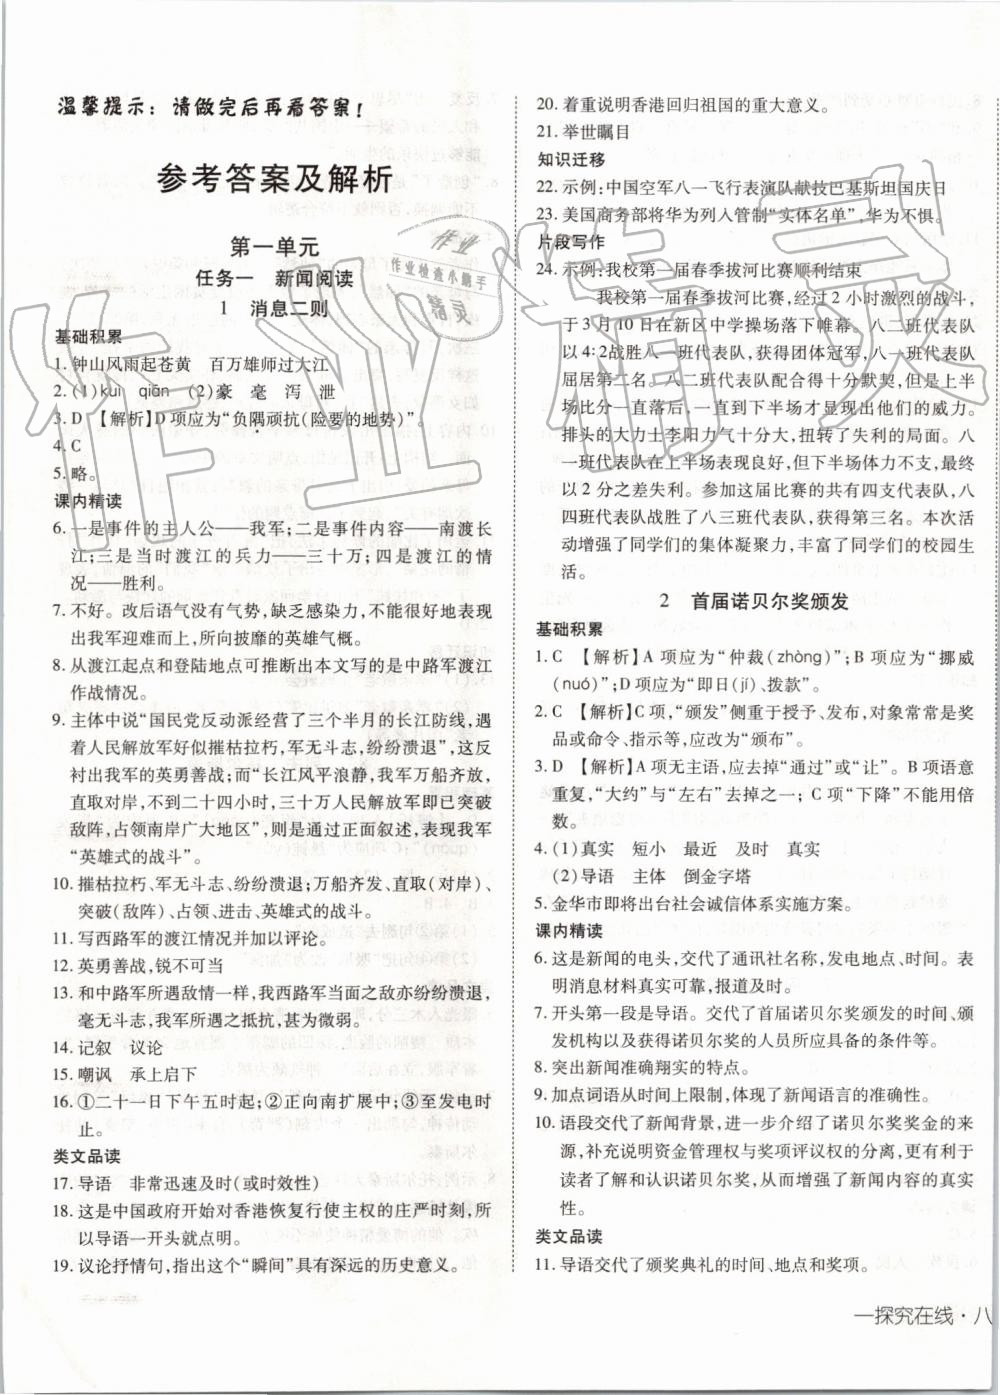 温馨提示:请做完后再看答案!
参考答案及解析
第一单元
任务一 新闻阅读
1 消息二则
基础积累
1. 钟山风雨起苍黄 百万雄师过大江
2. (1)kuì qiān (2)豪 毫 泻 泄
3. D 【解析】D项应为“负隅顽抗(险要的地势)”
4. C
5. 略。
课内精读
6. 一是事件的主人公——我军;二是事件内容——南渡长
江;三是当时渡江的兵力——三十万;四是渡江的情
况——胜利。
7. 不好。改后语气没有气势,缺乏感染力,不能很好地表现
出我军迎难而上,所向披靡的英雄气概。
8. 从渡江起点和登陆地点可推断出本文写的是中路军渡江
作战情况。
9. 主体中说“国民党反动派经营了三个半月的长江防线,遇
着人民解放军好似摧枯拉朽,军无斗志,纷纷溃退”,这反
衬出我军的英勇善战;而“长江风平浪静,我军万船齐放,
直取对岸,不到二十四小时,三十万人民解放军即已突破
敌阵,占领南岸广大地区”,则是通过正面叙述,表现我军
“英雄式的战斗”。
10. 摧枯拉朽、军无斗志、纷纷溃退;万船齐发、直取(对岸)、
突破(敌阵)、占领、进击、英雄式的战斗。
11. 写西路军的渡江情况并加以评论。
12. 英勇善战,锐不可当
13. 和中路军所遇敌情一样,我西路军当面之敌亦纷纷溃退,
毫无斗志,我军所遇之抵抗,甚为微弱。
14. 记叙 议论
15. 嘲讽 承上启下
16. ①二十一日下午五时起;②正向南扩展中;③至发电时
止。
类文品读
17. 导语 非常迅速及时(或时效性)
18. 这是中国政府开始对香港恢复行使主权的庄严时刻,所
以导语一开头就点明。
19. 议论抒情句,指出这个“瞬间”具有深远的历史意义。
20. 着重说明香港回归祖国的重大意义。
21. 举世瞩目
知识迁移
22. 示例:中国空军八一飞行表演队献技巴基斯坦国庆日
23. 美国商务部将华为列入管制“实体名单”,华为不惧。
片段写作
24. 示例:我校第一届春季拔河比赛顺利结束
我校第一届春季拔河比赛,经过2小时激烈的战斗,
于3月10日在新区中学操场落下帷幕。八二班代表队
以4:2战胜八一班代表队,获得团体冠军,八一班代表队
屈居第二名。八二班代表队配合得十分默契,但是上半
场比分一直落后,一直到下半场才显现出他们的威力。
排头的大力士李阳力气十分大,扭转了失利的局面。八
一班代表队在上半场表现良好,但下半场体力不支,最终
以2分之差失利。参加这届比赛的共有四支代表队,八
四班代表队战胜了八三班代表队,获得第三名。本次活
动增强了同学们的集体凝聚力,丰富了同学们的校园生
活。
2 首届诺贝尔奖颁发
基础积累
1. C 【解析】A项应为“仲裁(zhòng)”;B项应为“挪威
(nuó)”;D项应为“即日(jí)、拨款”。
2. C 【解析】C项,“颁发”侧重于授予、发布,对象常常是奖
品或命令、指示等,应改为“颁布”。
3. D 【解析】A项无主语,应去掉“通过”或“让”。B项语意
重复,“大约”与“左右”去掉之一;C项“下降”不能用倍
数。
4. (1)真实 短小 最近 及时 真实
(2)导语 主体 倒金字塔
5. 金华市即将出台社会诚信体系实施方案。
课内精读
6. 这是新闻的电头,交代了通讯社名称,发电地点、时间。表
明消息材料真实可靠,报道及时。
7. 开头第一段是导语。交代了首届诺贝尔奖颁发的时间、颁
发机构以及获得诺贝尔奖的人员所应具备的条件等。
8. 突出新闻准确翔实的特点。
9. 加点词语从时间上限制,体现了新闻语言的准确性。
10. 语段交代了新闻背景,进一步介绍了诺贝尔奖奖金的来
源,补充说明资金管理权与奖项评议权的分离,更有利于
读者了解和认识诺贝尔奖,从而增强了新闻内容的真实
性。
类文品读
11. 导语交代了颁奖典礼的时间、地点和奖项。
一探究在线·八
作业检查小助手
作业
精灵
作业精灵